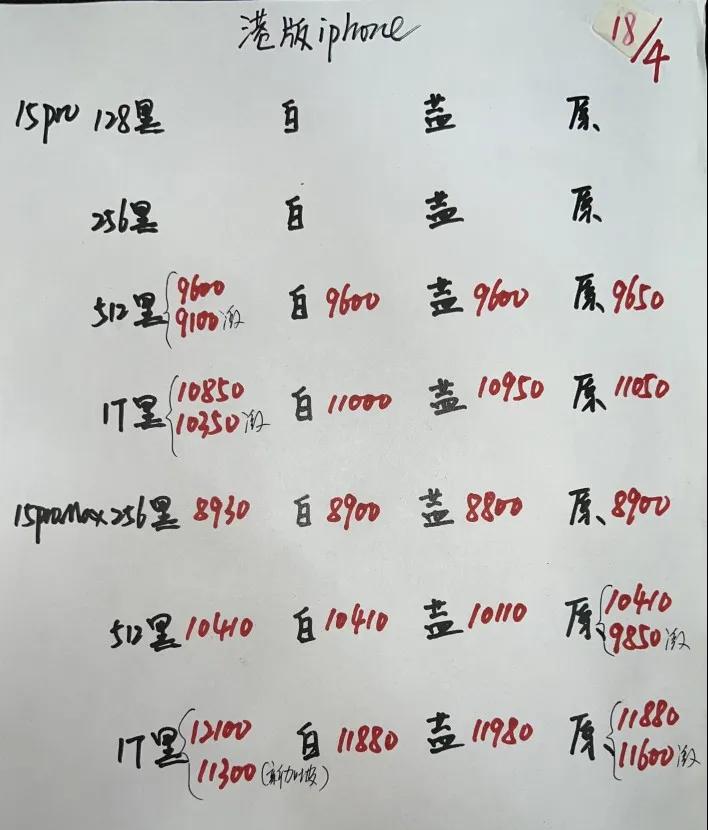 港版iphone 18/4
15pro 128黑 白 蓝 原
256黑 白 蓝 原
512黑 9600 9100激 白 9600 蓝 9600 原 9650
1T黑 10850 10350激 白 11000 蓝 10950 原 11050
15proMax 256黑 8930 白 8900 蓝 8800 原 8900
512黑 10410 白 10410 蓝 10110 原 10410 9850激
1T黑 12100 11300(新加坡) 白 11880 蓝 11980 原 11880 11600激